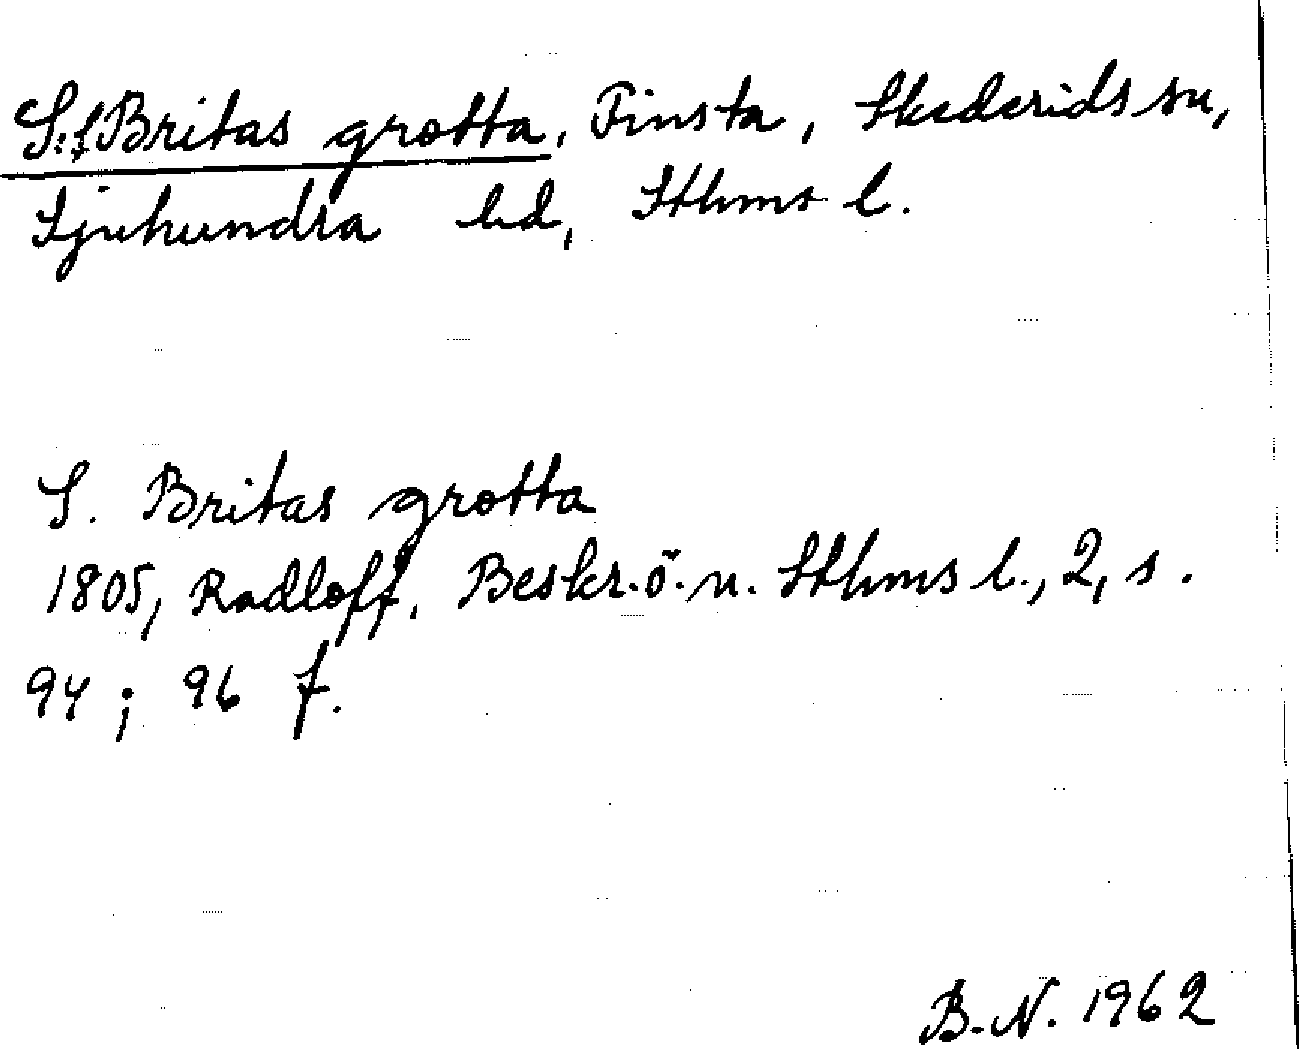 S:t Britas grotta, Finsta, Skederids sn,
Sjuhundra hd, Sthms l.
S. Britas grotta
1805, Radloff, Beskr. ö. n. Sthms l., 2, s.
94; 96 f.
B. N. 1962